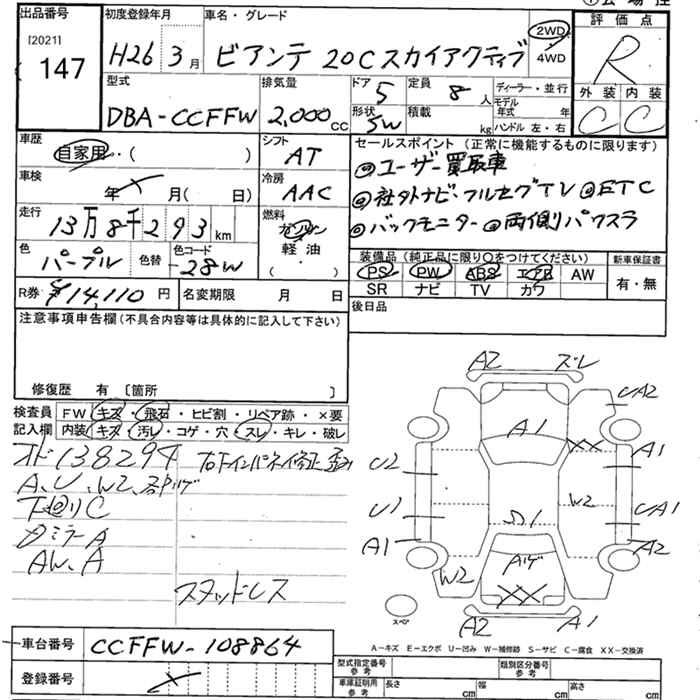 出品番号
[2021]
147
初度登録年月
H26 3月
車名・グレード
ビアンテ 20Cスカイアクティブ
2WD
4WD
評価点
R
外装 内装
C C
型式
DBA-CCFFW
排気量
2,000cc
ドア 5
形状 5W
定員 8人
積載 kg
ディーラー・並行
モデル年式 年
ハンドル 左・右
車歴
自家用・( )
シフト
AT
車検
年 月( 日)
冷房
AAC
走行
13万8千293km
燃料
ガソリン
軽油
( )
色
パープル
色替
色コード
28W
R券 ¥14,110円
名変期限 月 日
セールスポイント (正常に機能するものに限ります)
◎ユーザー買取車
◎社外ナビ・フルセグTV ◎ETC
◎バックモニター ◎両側パワスラ
装備品 (純正品に限り○をつけてください)
PS PW ABS エアB AW
SR ナビ TV カワ
新車保証書
有・無
後日品
注意事項申告欄(不具合内容等は具体的に記入して下さい)
修復歴 有 〔箇所 〕
検査員 FW キズ・飛石・ヒビ割・リペア跡・×要
記入欄 内装 キズ・汚レ・コゲ・穴・スレ・キレ・破レ
オド138294
A、U、W2、
下廻りC
ミラーA
AW、A
右ドインパネ修正歪み
スタッドレス
A2 ズレ
UA2
A1
XX
A1
U2
W2
U1
UA1
A1
A2
W2
XX
A2 A1
スペア
A-キズ E-エクボ U-凹み W-補修跡 S-サビ C-腐食 XX-交換済
車台番号 CCFFW-108864
登録番号
型式指定番号 参考
類別区分番号 参考
車庫証明用 参考
長さ cm 幅 cm 高さ cm